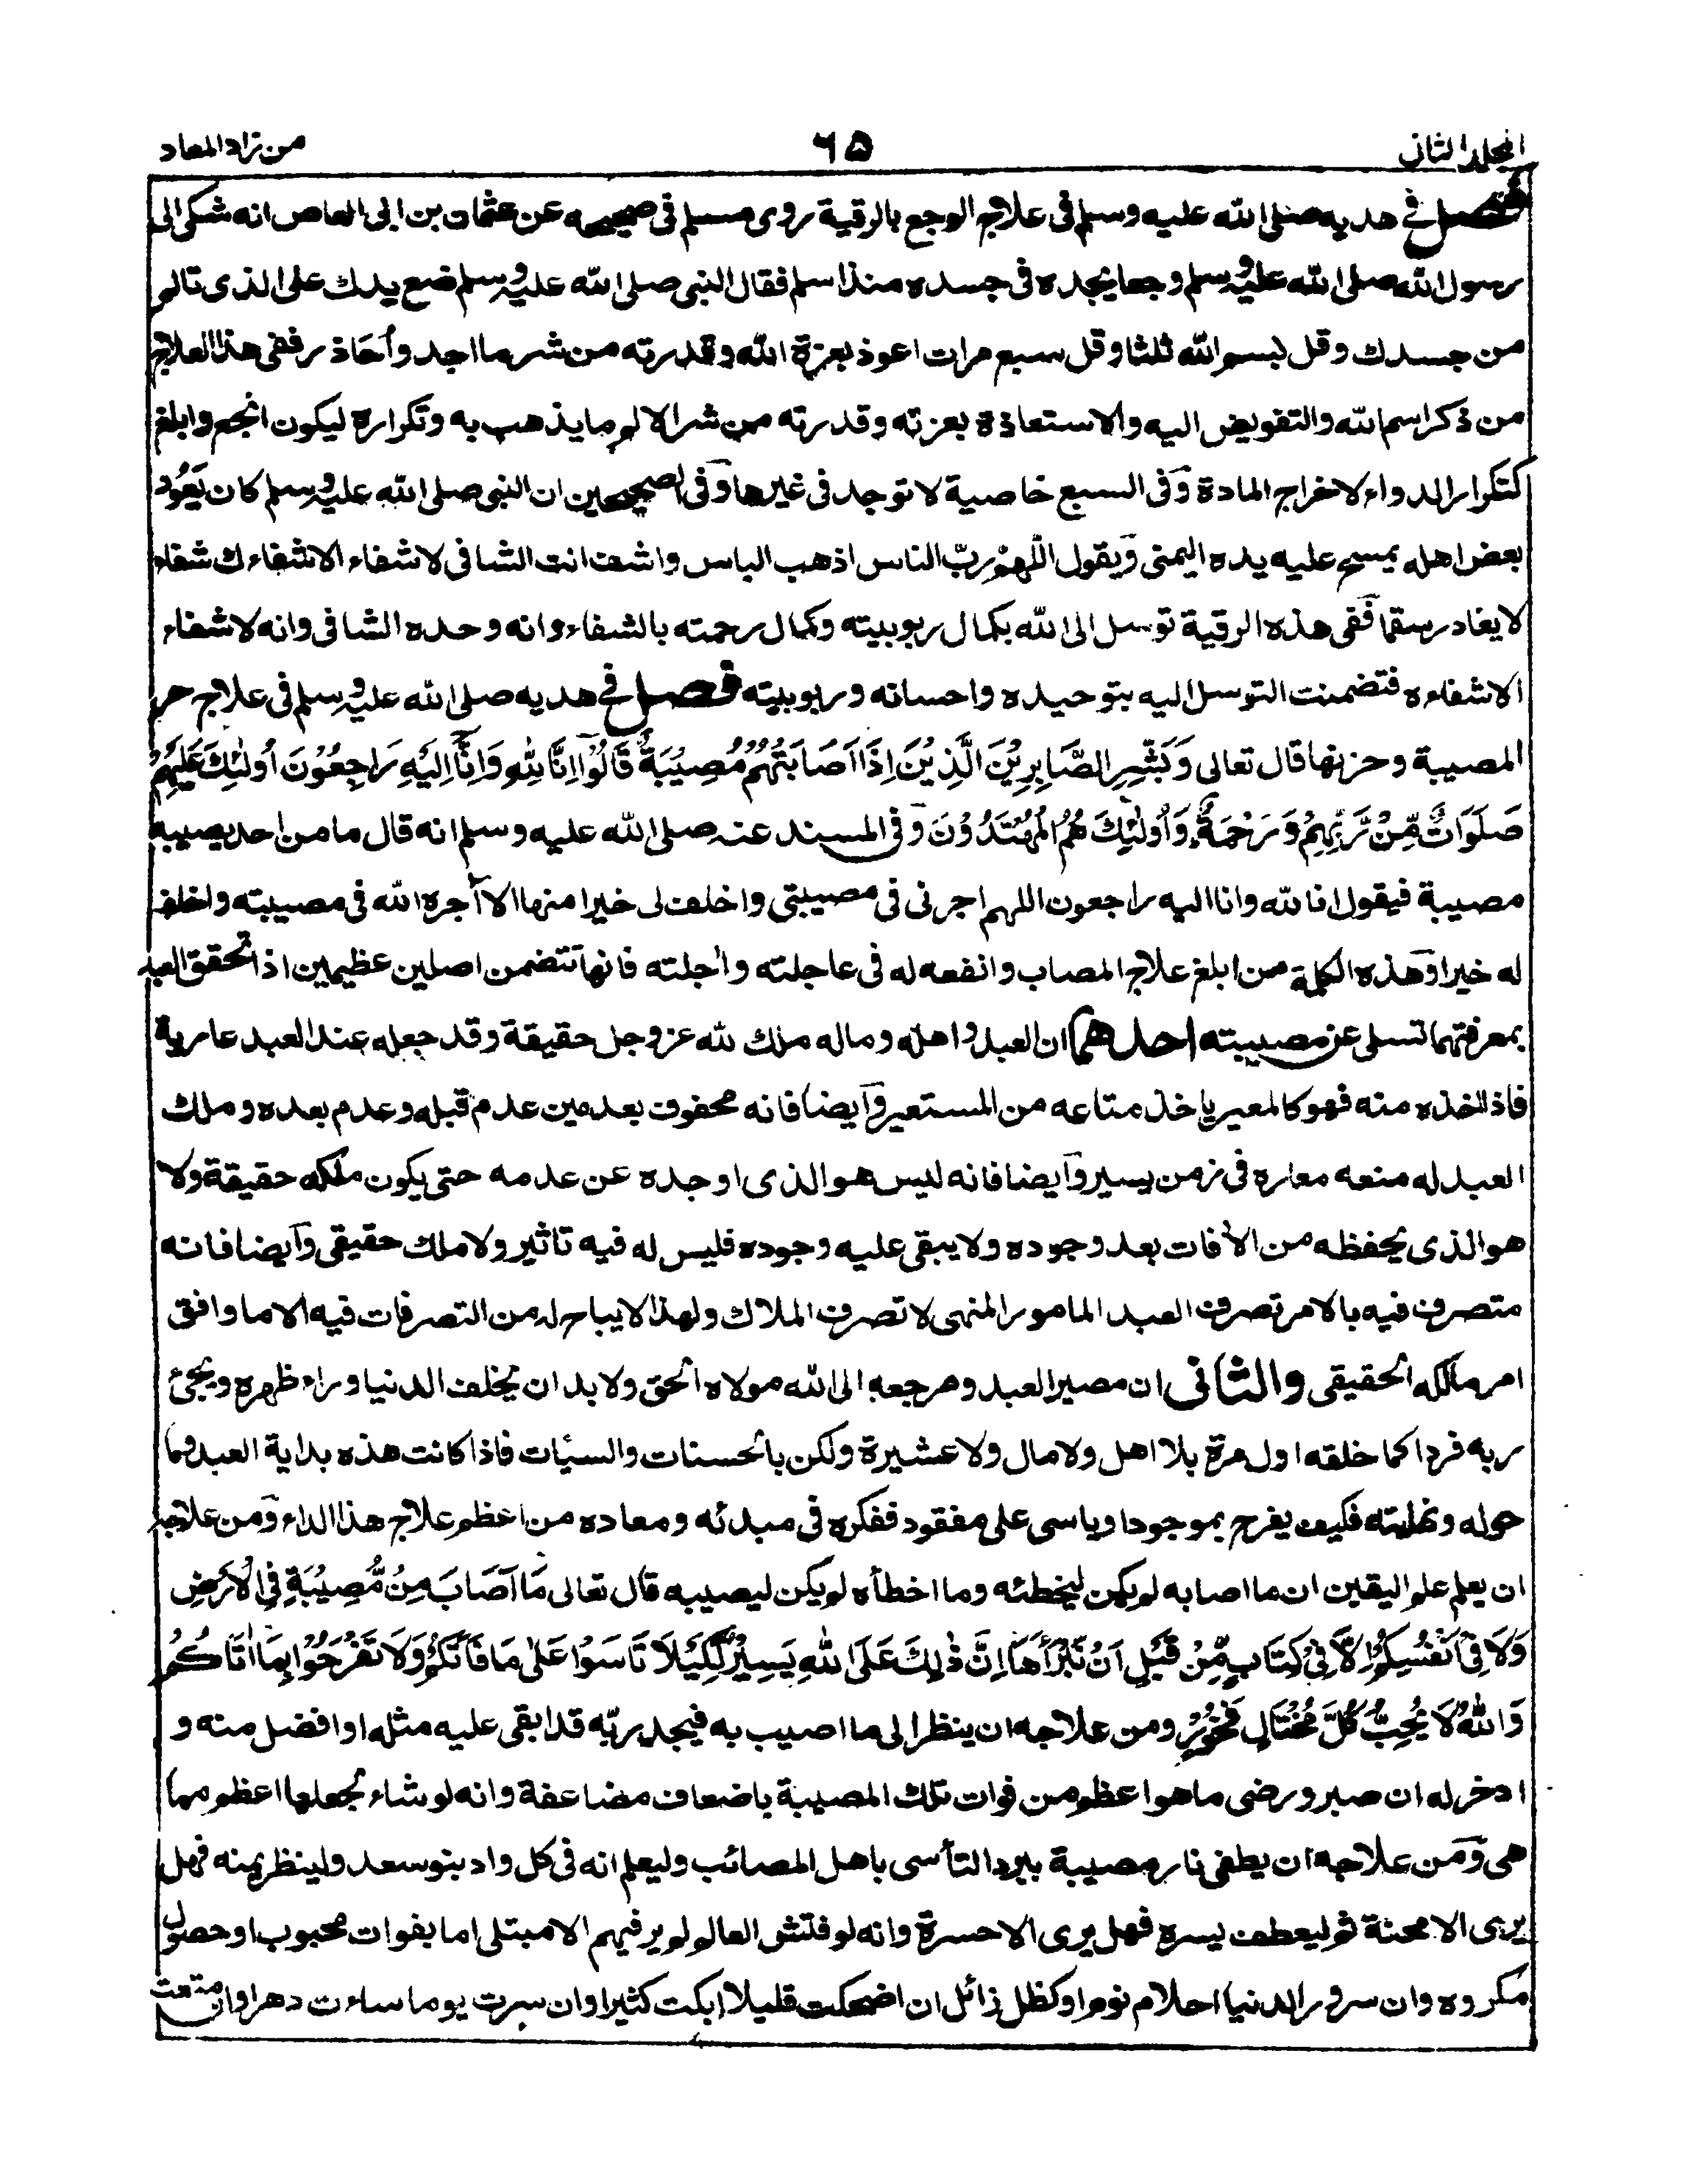 المجلد الثانى
٦٥
من زاد المعاد
فصل فى هديه صلى الله عليه وسلم فى علاج الوجع بالرقية روى مسلم فى صحيحه عن عثمان بن ابى العاص انه شكى الى
رسول الله صلى الله عليه وسلم وجعا يجده فى جسده منذ اسلم فقال النبى صلى الله عليه وسلم ضع يدك على الذى تالم
من جسدك وقل بسم الله ثلثا وقل سبع مرات اعوذ بعزة الله وقدرته من شر ما اجد وأحاذر ففى هذا العلاج
من ذكر اسم الله والتفويض اليه والاستعاذة بعزته وقدرته من شر الالم ما يذهب به وتكراره ليكون انجع وابلغ
كتكرار الدواء لاخراج المادة وفى السبع خاصية لا توجد فى غيرها وفى الصحيحين ان النبى صلى الله عليه وسلم كان يَعُود
بعض اهله يمسح عليه يده اليمنى ويقول اللهم ربّ الناس اذهب الباس واشف انت الشافى لا شفاء الا شفاءك شفاء
لا يغادر سقما ففى هذه الرقية توسل الى الله بكمال ربوبيته وكمال رحمته بالشفاء وانه وحده الشافى وانه لا شفاء
الا شفاءه فتضمنت التوسل اليه بتوحيده واحسانه وربوبيته فصل فى هديه صلى الله عليه وسلم فى علاج حر
المصيبة وحزنها قال تعالى وَبَشِّرِ الصَّابِرِيْنَ الَّذِيْنَ اِذَا اَصَابَتْهُمْ مُصِيْبَةٌ قَالُوْا اِنَّا لِلّٰهِ وَاِنَّا اِلَيْهِ رَاجِعُوْنَ اُولٰئِكَ عَلَيْهِمْ
صَلَوَاتٌ مِّنْ رَّبِّهِمْ وَرَحْمَةٌ وَاُولٰئِكَ هُمُ الْمُهْتَدُوْنَ وفى المسند عنه صلى الله عليه وسلم انه قال ما من احد يصيبه
مصيبة فيقول انا لله وانا اليه راجعون اللهم اجرنى فى مصيبتى واخلف لى خيرا منها الا آجره الله فى مصيبته واخلف
له خيرا وهذه الكلمة من ابلغ علاج المصاب وانفعه له فى عاجلته وآجلته فانها تتضمن اصلين عظيمين اذا تحقق العبد
بمعرفتهما تسلى عن مصيبته احدهما ان العبد واهله وماله ملك لله عز وجل حقيقة وقد جعله عند العبد عارية
فاذا اخذه منه فهو كالمعير ياخذ متاعه من المستعير وايضا فانه محفوف بعدمين عدم قبله وعدم بعده وملك
العبد له منعه معاره فى زمن يسير وايضا فانه ليس هو الذى اوجده عن عدمه حتى يكون ملكه حقيقة ولا
هو الذى يحفظه من الآفات بعد وجوده ولا يبقى عليه وجوده فليس له فيه تاثير ولا ملك حقيقى وايضا فانه
متصرف فيه بالامر تصرف العبد المامور المنهى لا تصرف الملاك ولهذا لا يباح له من التصرفات فيه الا ما وافق
امر مالكه الحقيقى والثانى ان مصير العبد ومرجعه الى الله مولاه الحق ولا بد ان يخلف الدنيا وراء ظهره ويجئ
ربه فردا كما خلقه اول مرة بلا اهل ولا مال ولا عشيرة ولكن بالحسنات والسيئات فاذا كانت هذه بداية العبد وما
خوله ونهايته فكيف يفرح بموجود او ياسى على مفقود ففكره فى مبدئه ومعاده من اعظم علاج هذا الداء ومن علاجه
ان يعلم علم اليقين ان ما اصابه لم يكن ليخطئه وما اخطأه لم يكن ليصيبه قال تعالى مَا اَصَابَ مِنْ مُّصِيْبَةٍ فِى الْاَرْضِ
وَلَا فِىْ اَنْفُسِكُمْ اِلَّا فِىْ كِتَابٍ مِّنْ قَبْلِ اَنْ نَّبْرَأَهَا اِنَّ ذٰلِكَ عَلَى اللهِ يَسِيْرٌ لِّكَيْلَا تَاسَوْا عَلٰى مَا فَاتَكُمْ وَلَا تَفْرَحُوْا بِمَا اٰتَاكُمْ
وَاللهُ لَا يُحِبُّ كُلَّ مُخْتَالٍ فَخُوْرٍ ومن علاجه ان ينظر الى ما اصيب به فيجد ربّه قد ابقى عليه مثله او افضل منه و
ادخر له ان صبر ورضى ما هو اعظم من فوات تلك المصيبة باضعاف مضاعفة وانه لو شاء لجعلها اعظم مما
هى ومن علاجه ان يطفى نار مصيبة ببرد التأسى باهل المصائب وليعلم انه فى كل واد بنو سعد ولينظر يمنه فهل
يرى الا محنة ثم ليعطف يسره فهل يرى الا حسرة وانه لو فتش العالم لم ير فيهم الا مبتلى اما بفوات محبوب او حصول
مكروه وان سرور الدنيا احلام نوم او كظل زائل ان اضحكت قليلا ابكت كثيرا وان سرت يوما ساءت دهرا وان متعت